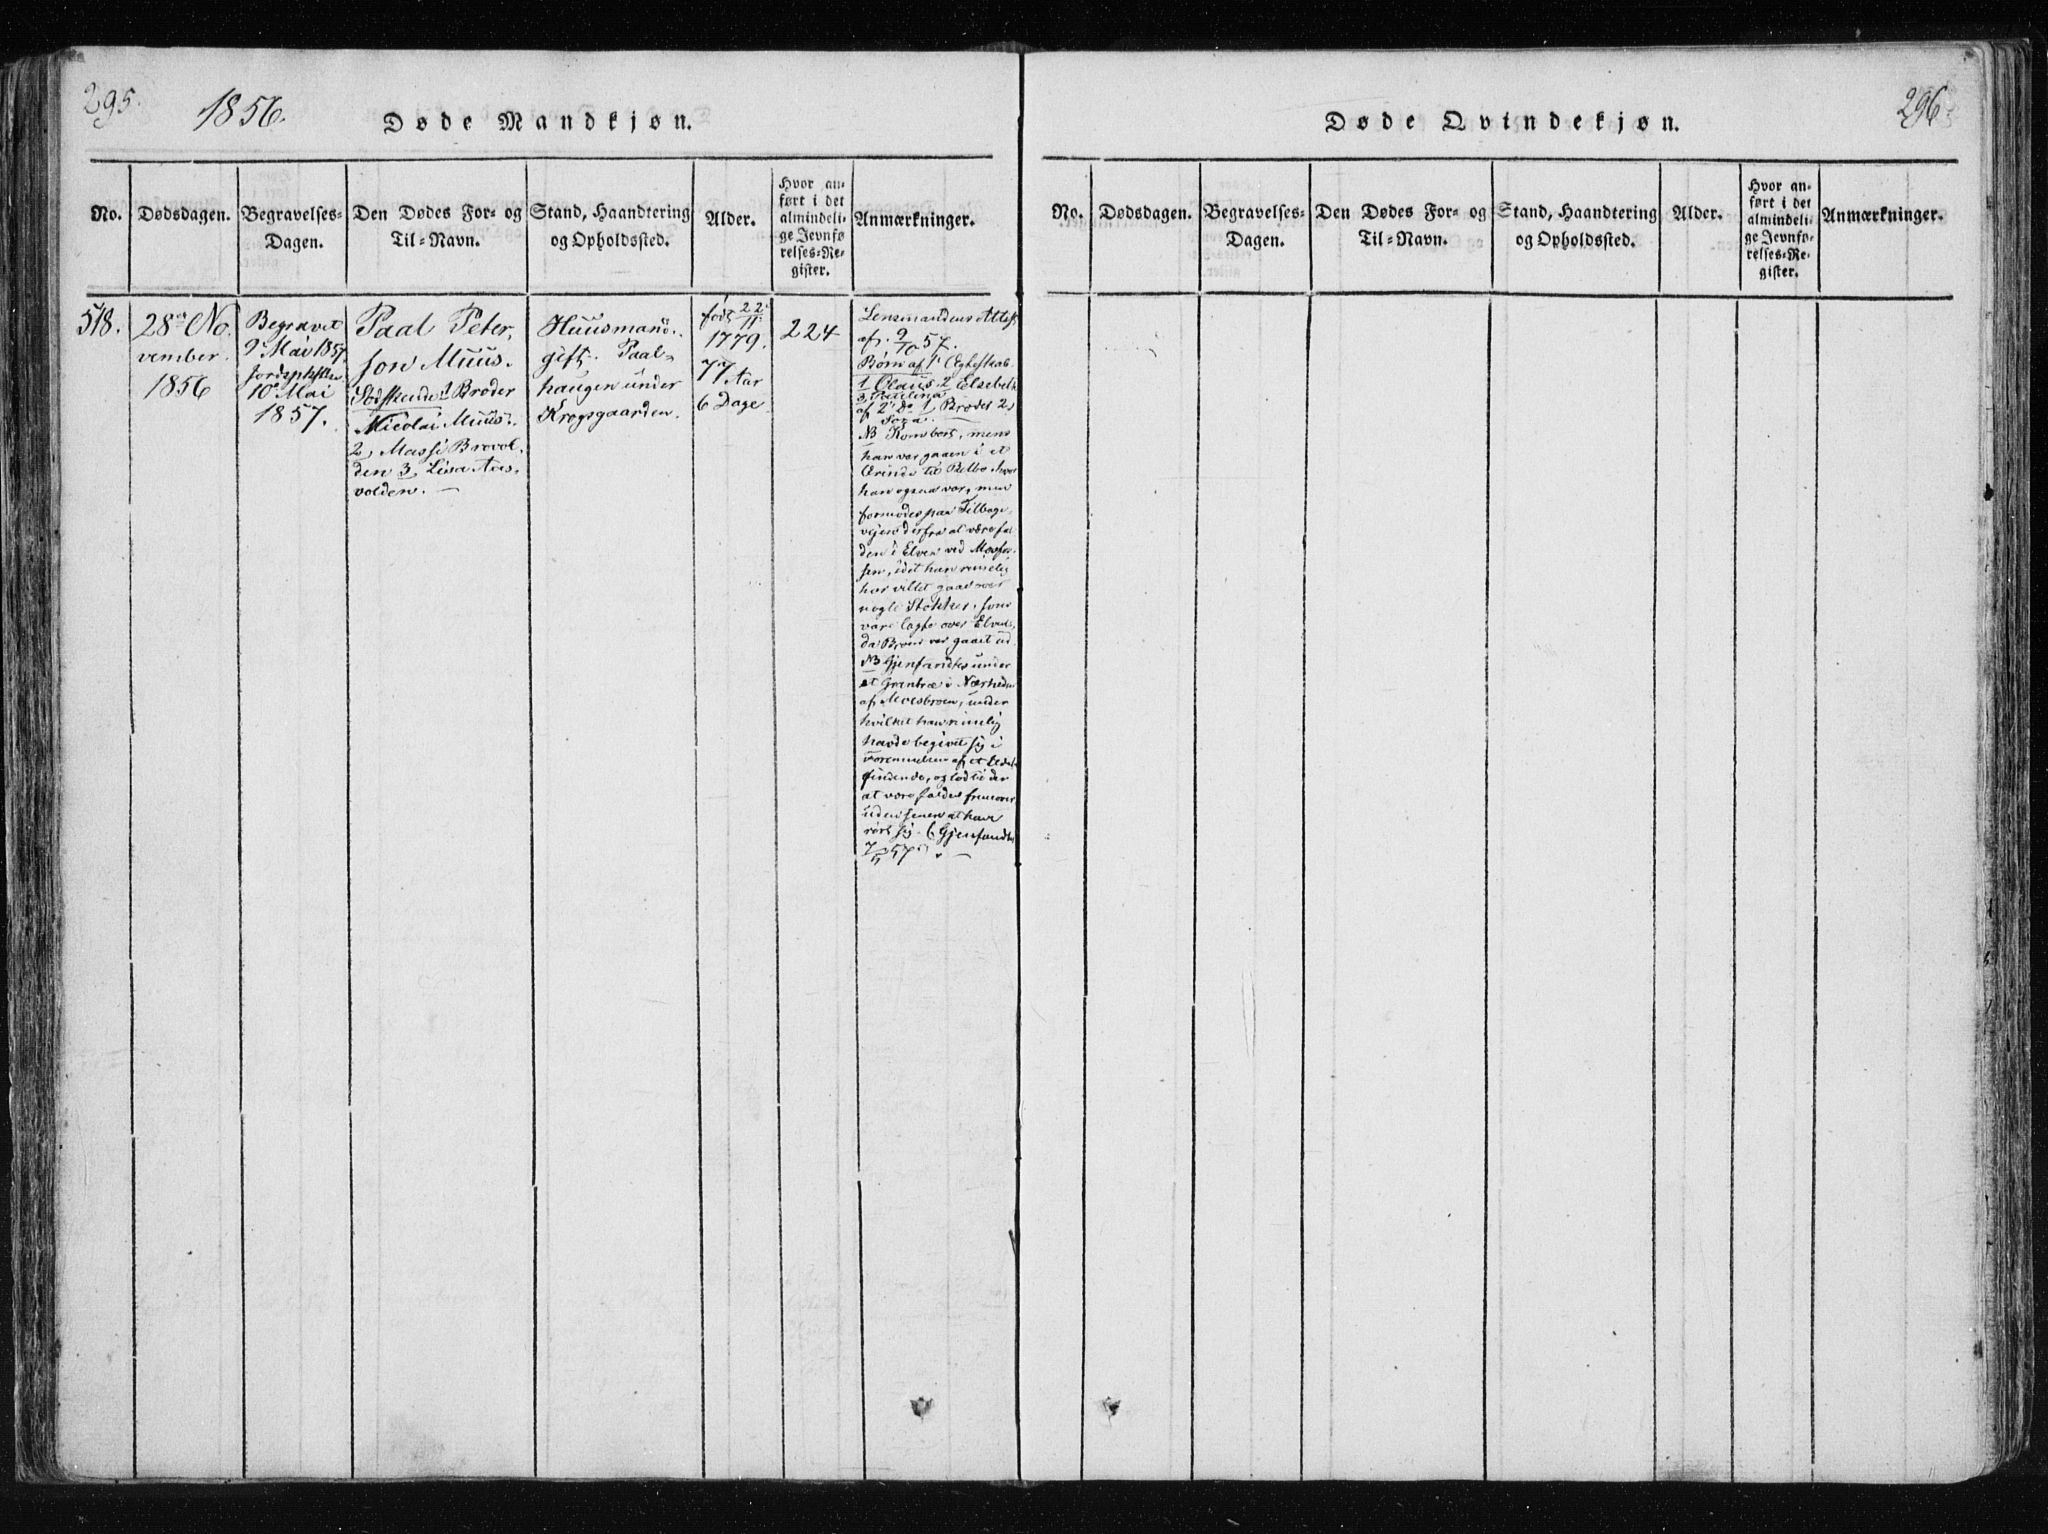 295.
1856.
Døde Mandkjøn.
No.
Dødsdagen.
Begravelses-
Dagen.
Den Dødes For- og
Til-Navn.
Stand, Haandtering
og Opholdssted.
Alder.
Hvor an-
ført i det
almindeli-
ge Jevnfø-
relses-Re-
gister.
Anmærkninger.
518.
28de No-
vember.
1856
Begravet
9 Mai 1857.
10 Mai
1857.
Paal Peter,
son Muus.
Sødskende 1 Broder
Nicolai Muus.
2, Massi Brovol-
den 3, Lisa Aas-
volden.
Huusmand.
gift. Paal-
haugen under
Krogsgaarden.
født 22/11
1779.
77 Aar
6 Dage
224
Lensmandens Attest
af. 9/10 57.
Børn af 1 Egteskab
1 Olaus. 2 Elsebeth
3,
af 2 Do 1, Broder 2,
NB Kombert, mens
han var gaaen i et
Ærinde til Selbo hvor
han ogsaa var, men
formodes paa Tilbage-
veien derfra at være fal-
den i Elven ved Mosfos-
sen, idet han rimelig
har villet gaae over
nogle Stokke, som
vare lagte over Elven,
da Broen var gaaet ud.
NB Gjenfandtes under
et Grantræ i Nærheden
af Moesbroen, under
hvilket han rimelig
havde begivet sig i
af et Ilde-
findende, og lod til der
at være falden fremover
uden senere at have
rørt sig. (Gjenfandtes
7/5 57)
296
Døde Qvindekjøn.
No.
Dødsdagen.
Begravelses-
Dagen.
Den Dødes For- og
Til-Navn.
Stand, Haandtering
og Opholdssted.
Alder.
Hvor an-
ført i det
almindeli-
ge Jevnfø-
relses-Re-
gister.
Anmærkninger.